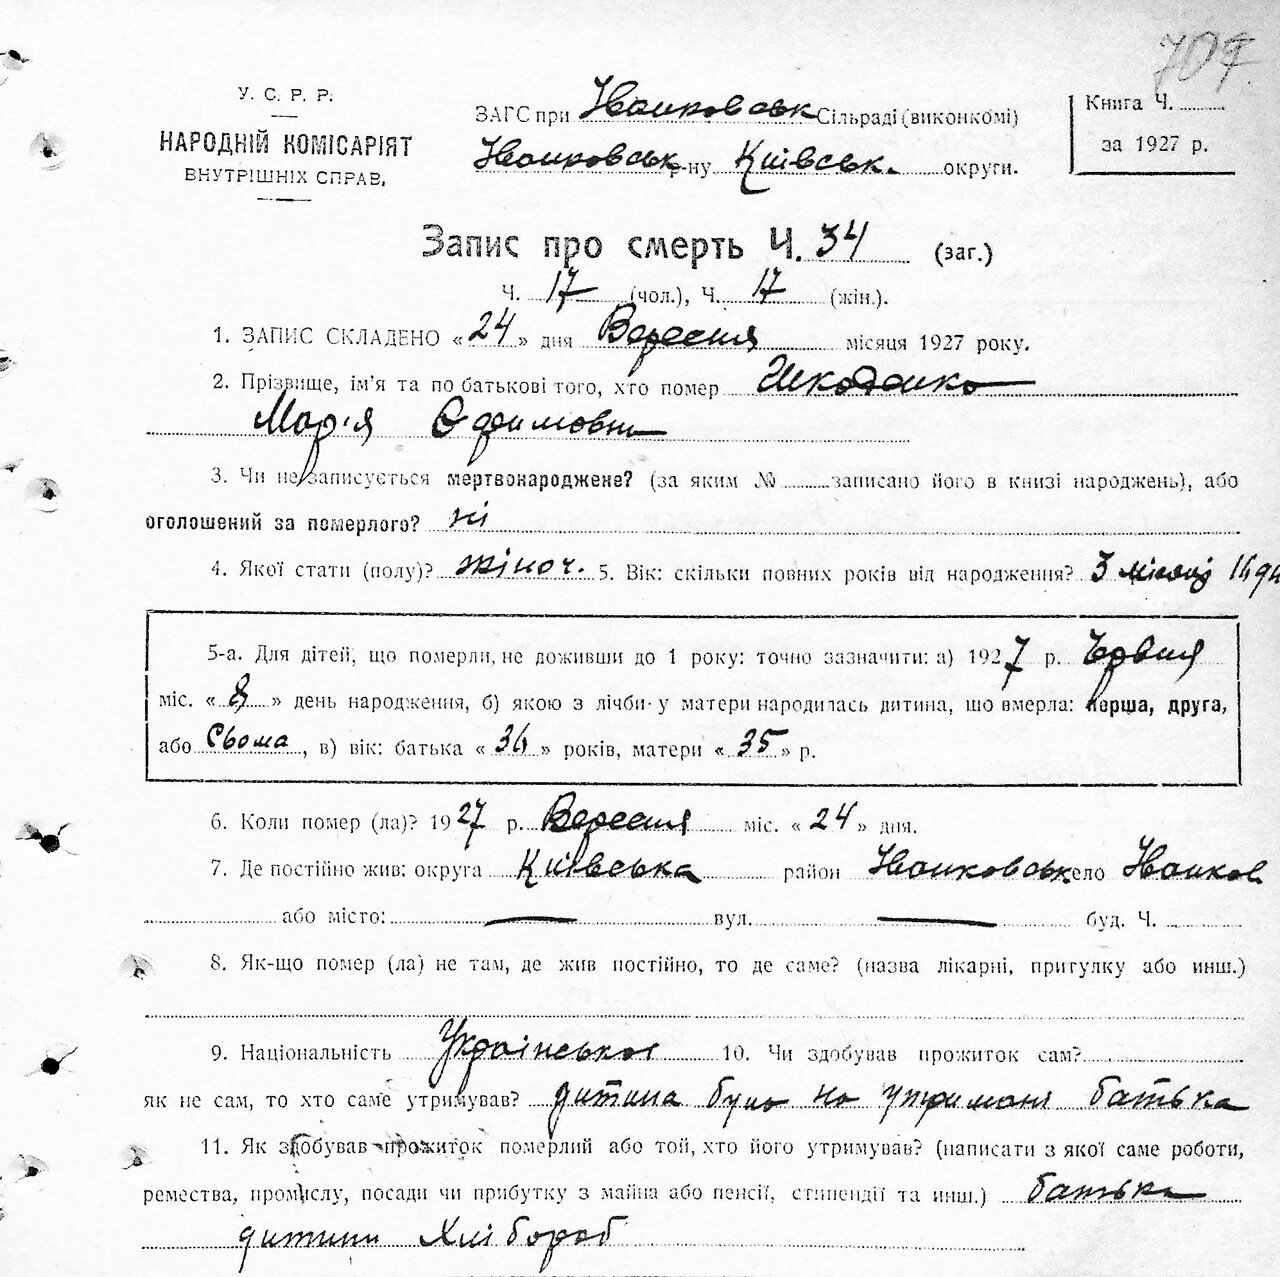 707
У. С. Р. Р.
НАРОДНІЙ КОМІСАРІЯТ
ВНУТРІШНІХ СПРАВ.
ЗАГС при Іванковськ Сільраді (виконкомі)
Іванковськ р-ну Київськ. округи.
Книга Ч.
за 1927 р.
Запис про смерть Ч. 34 (заг.)
Ч. 17 (чол.), Ч. 17 (жін.).
1. ЗАПИС СКЛАДЕНО «24» дня Вересня місяця 1927 року.
2. Прізвище, ім'я та по батькові того, хто помер Шкоденко
Марія Єфимовна
3. Чи не записується мертвонароджене? (за яким № записано його в книзі народжень), або
оголошений за померлого? ні
4. Якої стати (полу)? жіноч. 5. Вік: скільки повних років від народження? 3 місяці
5-а. Для дітей, що померли, не доживши до 1 року: точно зазначити: а) 1927 р. Червня
міс. «8» день народження, б) якою з лічби у матери народилась дитина, що вмерла: перша, друга,
або Сьома, в) вік: батька «36» років, матери «35» р.
6. Коли помер (ла)? 1927 р. Вересня міс. «24» дня.
7. Де постійно жив: округа Київська район Іванковськ село Іванков
або місто: — вул. — буд. Ч.
8. Як-що помер (ла) не там, де жив постійно, то де саме? (назва лікарні, притулку або инш.)
9. Національність Українська 10. Чи здобував прожиток сам?
як не сам, то хто саме утримував? дитина була на утриманя батька
11. Як здобував прожиток померлий або той, хто його утримував? (написати з якої саме роботи,
ремества, промислу, посади чи прибутку з майна або пенсії, стипендії та инш.) батька
дитини Хлібороб